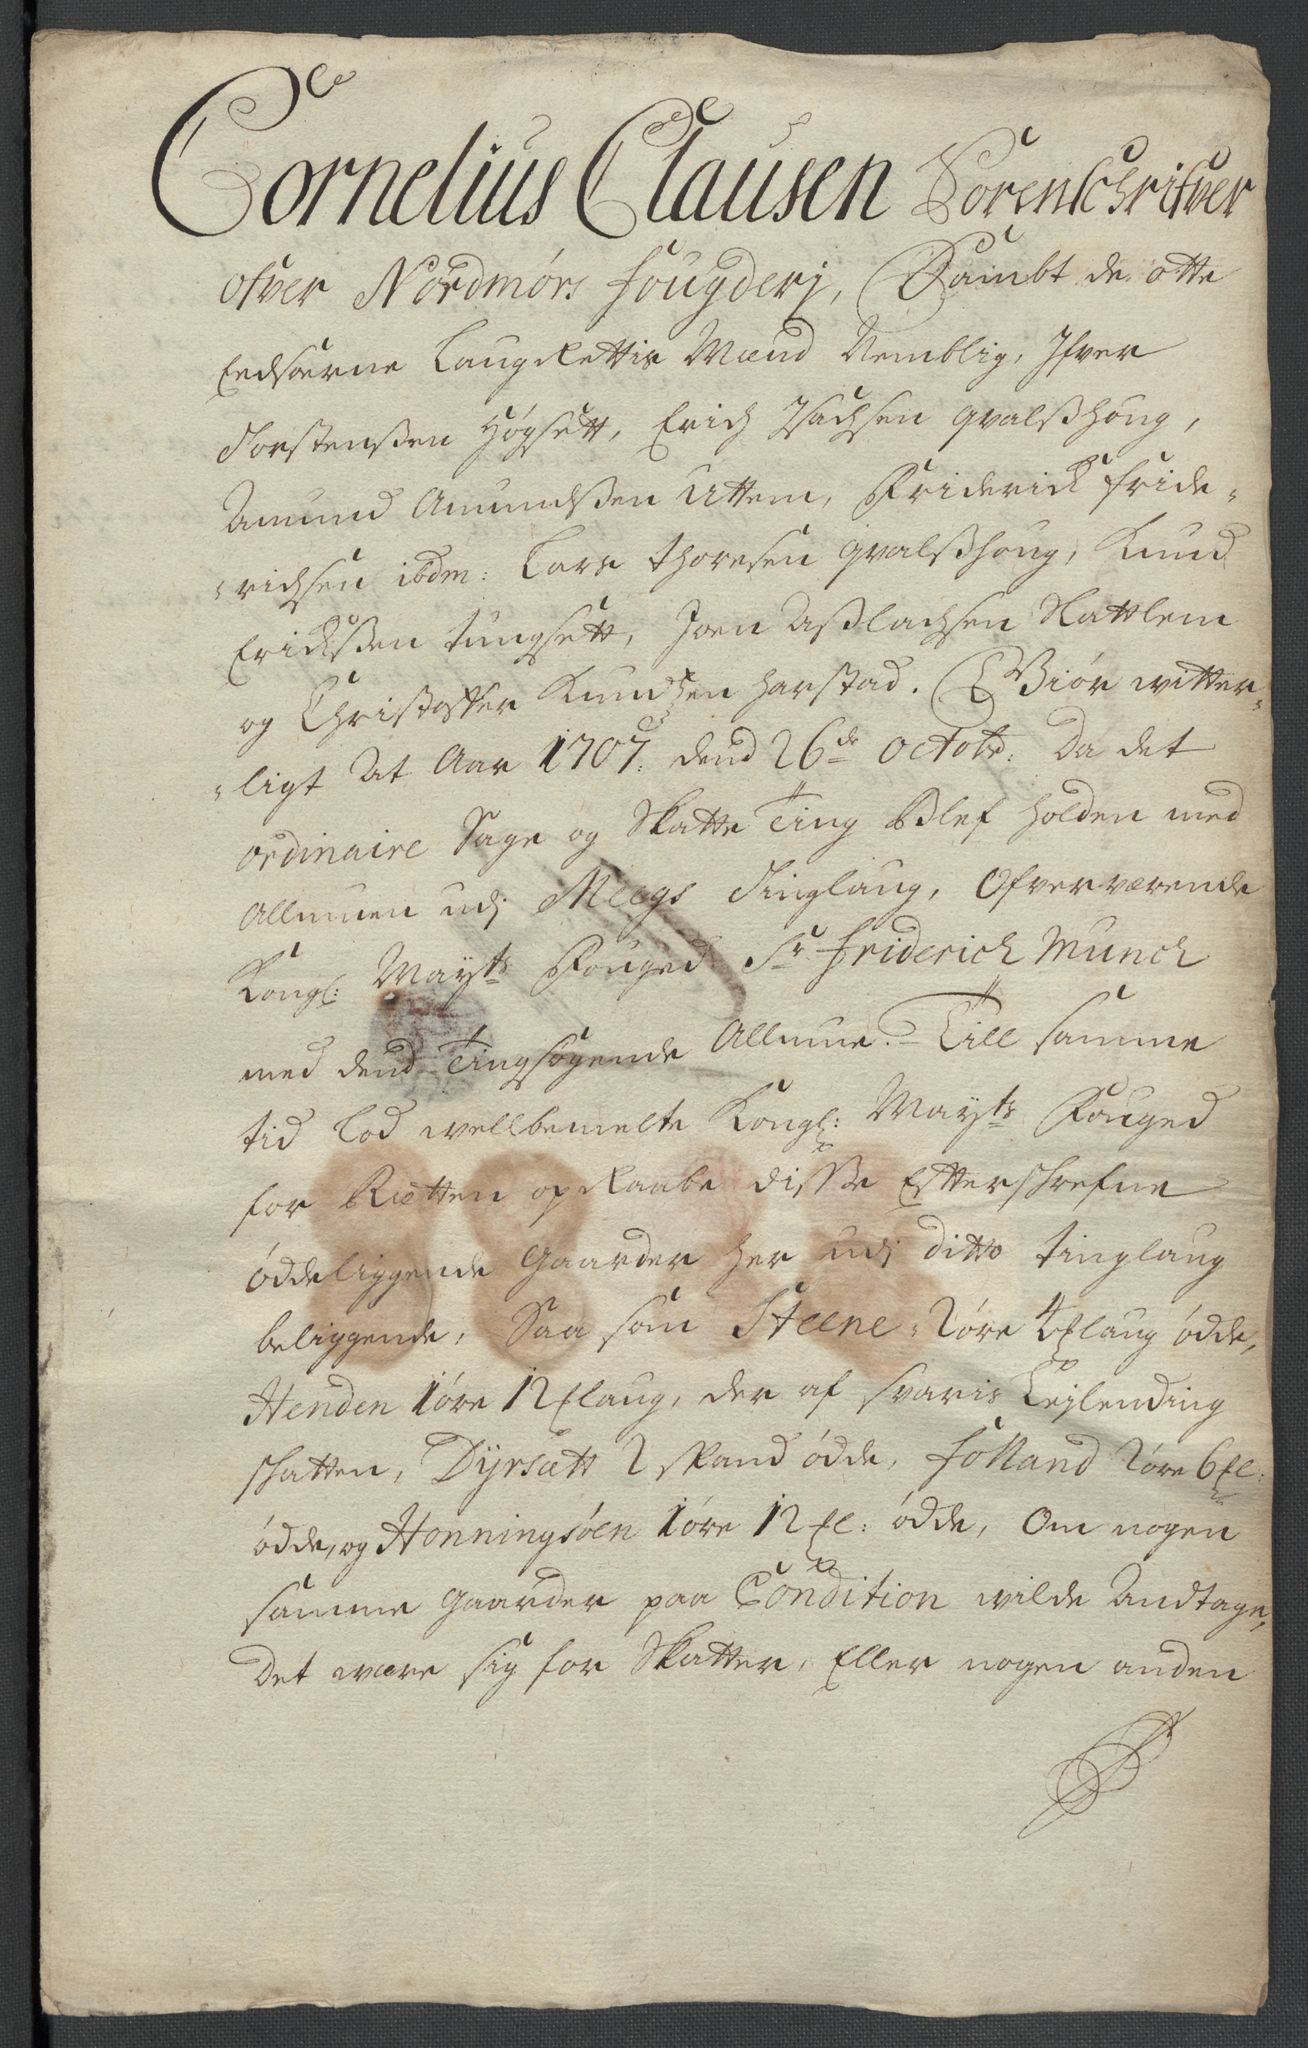 Cornelius Clausen Sorenschrifver
ofver Nordmørs fougderj, Sambt de otte
Eedsoerne Laugrettis Mænd Nemblig, Ifver
Torstensßen Høgsett, Erich Isachsen qvalßhoug,
Amund Amundsßen Uttem, Friderick Fride-
-richsen ibdm: Lars Thoresen qvalßhoug, Knud
Erichsßen tungsett, Joen Aßlachsen Slattlem
og Christoffer Knudsen harstad. Giør witter-
-ligt at Aar 1707. dend 26de octobr: Da det
ordinaire Sage og Skatte Ting Blef holden med
Allmuen udj Meegs Tinglaug, Ofverværende
Kongl: Mayts Fouged Sr Friderich Munch
med dend Tingsøgende Allmue. Till samme
tid Lod wellbemelte Kongl: Mayts Fouged
for Rætten opraabe disße Effterschrefne
ødeliggende Gaarder her udj ditto tinglaug
beliggende, Saa som Steene 2 øre 4 Mlaug ødde,
Henden 1 øre 12 Mlaug, der af svaris Leylending
schatten, Dyrsæt 2 spand ødde, Folland 2 øre 6 Ml:
ødde, og Honningsøen 1 øre 12 Ml: ødde, Om nogen
samme Gaarder paa Condition wilde Andtage,
Det være sig for Skatter, Eller nogen anden